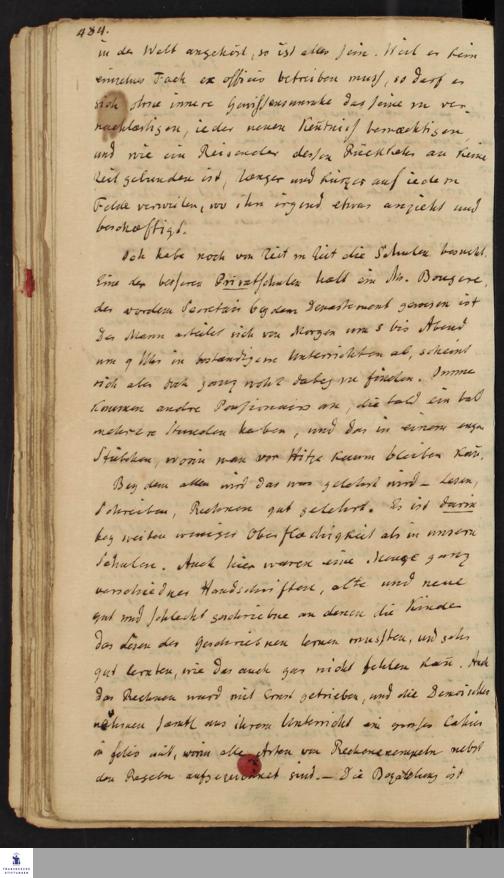 484.
in der Welt angehört, so ist alles sein. Weil er kein
einzelnes Fach ex officio betreiben muss, so darf er
sich ohne innere Gewissensunruhe das seine zu ver
nachlæssigen, jeder neuen Keñtniss bemæchtigen,
und wie ein Reisender dessen Rückkehr an keine
Zeit gebunden ist, længer und kürzer auf jedem
Felde verweilen, wo ihn irgend etwas anzieht und
beschæftigt.
Ich habe noch von Zeit zu Zeit die Schulen besucht.
Eine der besseren Privatschulen hælt ein Mr. Bougere,
der vordem Secretair bey dem Departement gewesen ist
Der Mann arbeitet sich von Morgen um 5 bis Abend
um 9 Uhr in bestændigem Unterrichten ab, scheint
sich aber doch ganz wohl dabey zu finden. Immer
kommen andre Pensionairs an, die bald ein bald
mehrere Stunden haben, und das in einem engen
Stübchen, worin man vor Hitze kaum bleiben kañ.
Bey dem allen wird das was gelehrt wird – Lesen,
Schreiben, Rechnen gut gelehrt. Es ist darin
bey weiten weniger Oberflæchigkeit als in unsern
Schulen. Auch hier waren eine Menge ganz
verschiedner Handschriften, alte und neue
gut und schlecht geschriebne an denen die Kinder
das Lesen des Geschriebnen lernen mussten, und sehr
gut lernten, wie das auch gar nicht fehlen kañ. Auch
das Rechnen ward mit Ernst getrieben, und die
nehmen samtl. aus ihrem Unterricht ein grosses Cahier
in folio mit, worin alle Arten von Rechenexempeln nebst
den Regeln aufgezeichnet sind. – Die Bezahlung ist
FRANCKESCHE
STIFTUNGEN